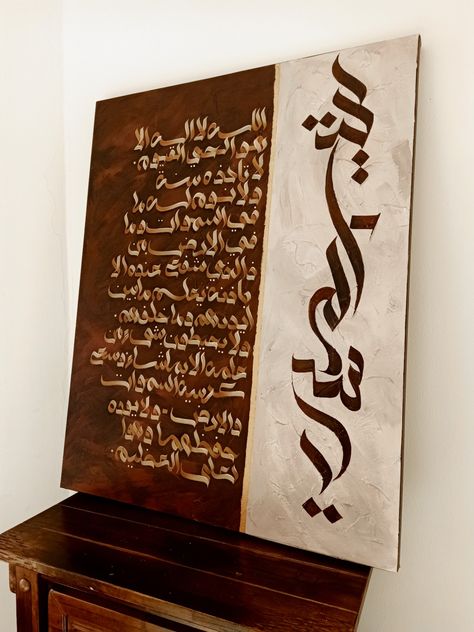 الله لا اله الا
هو الحي القيوم
لا تاخذه سنة
ولا نوم له ما
في السموات وما
في الارض من
ذا الذي يشفع عنده الا
باذنه يعلم ما بين
ايديهم وما خلفهم
ولا يحيطون بشي من
علمه الا بما شاء وسع
كرسيه السموات
والارض ولا يوده
حفظهما وهو ا
لعلي العظيم